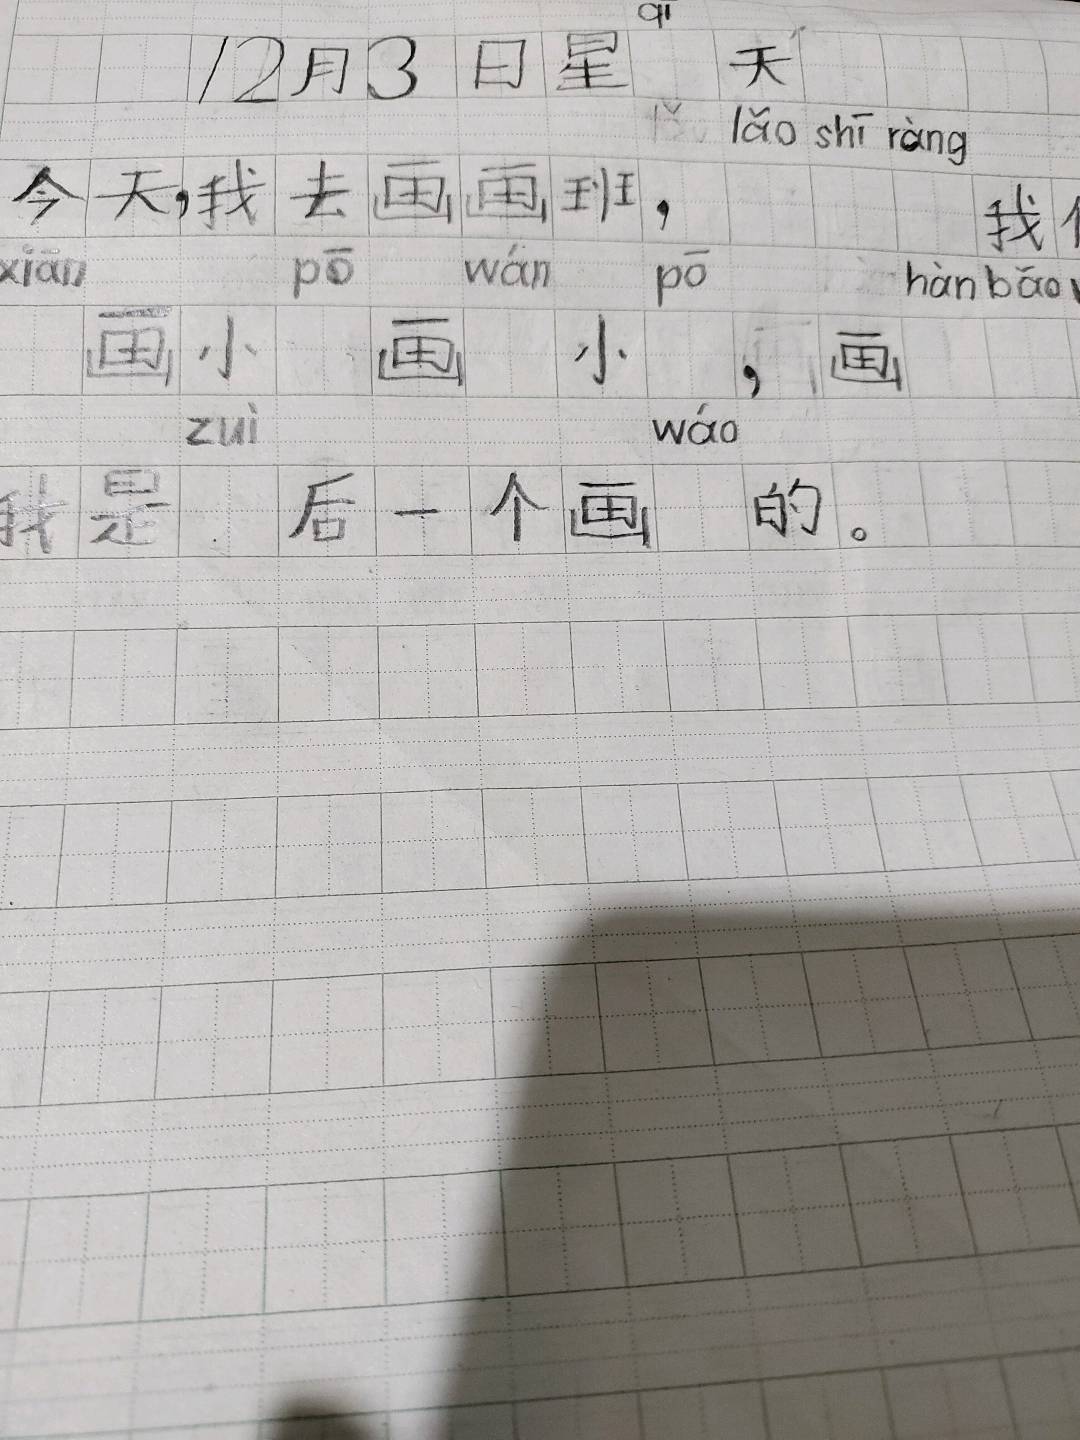 qī
12月3日星 天
lǎo shī ràng
今天,我去画画班, 我
xiān pō wán pō hàn bǎo
画小 画 小 , 画
zuì wáo
我是 后一个画 的。